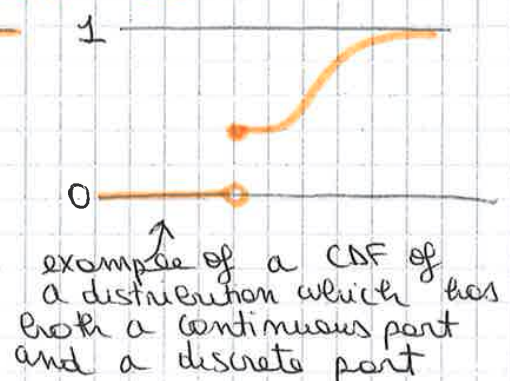 1
0
example of a CDF of
a distribution which has
both a continuous part
and a discrete part